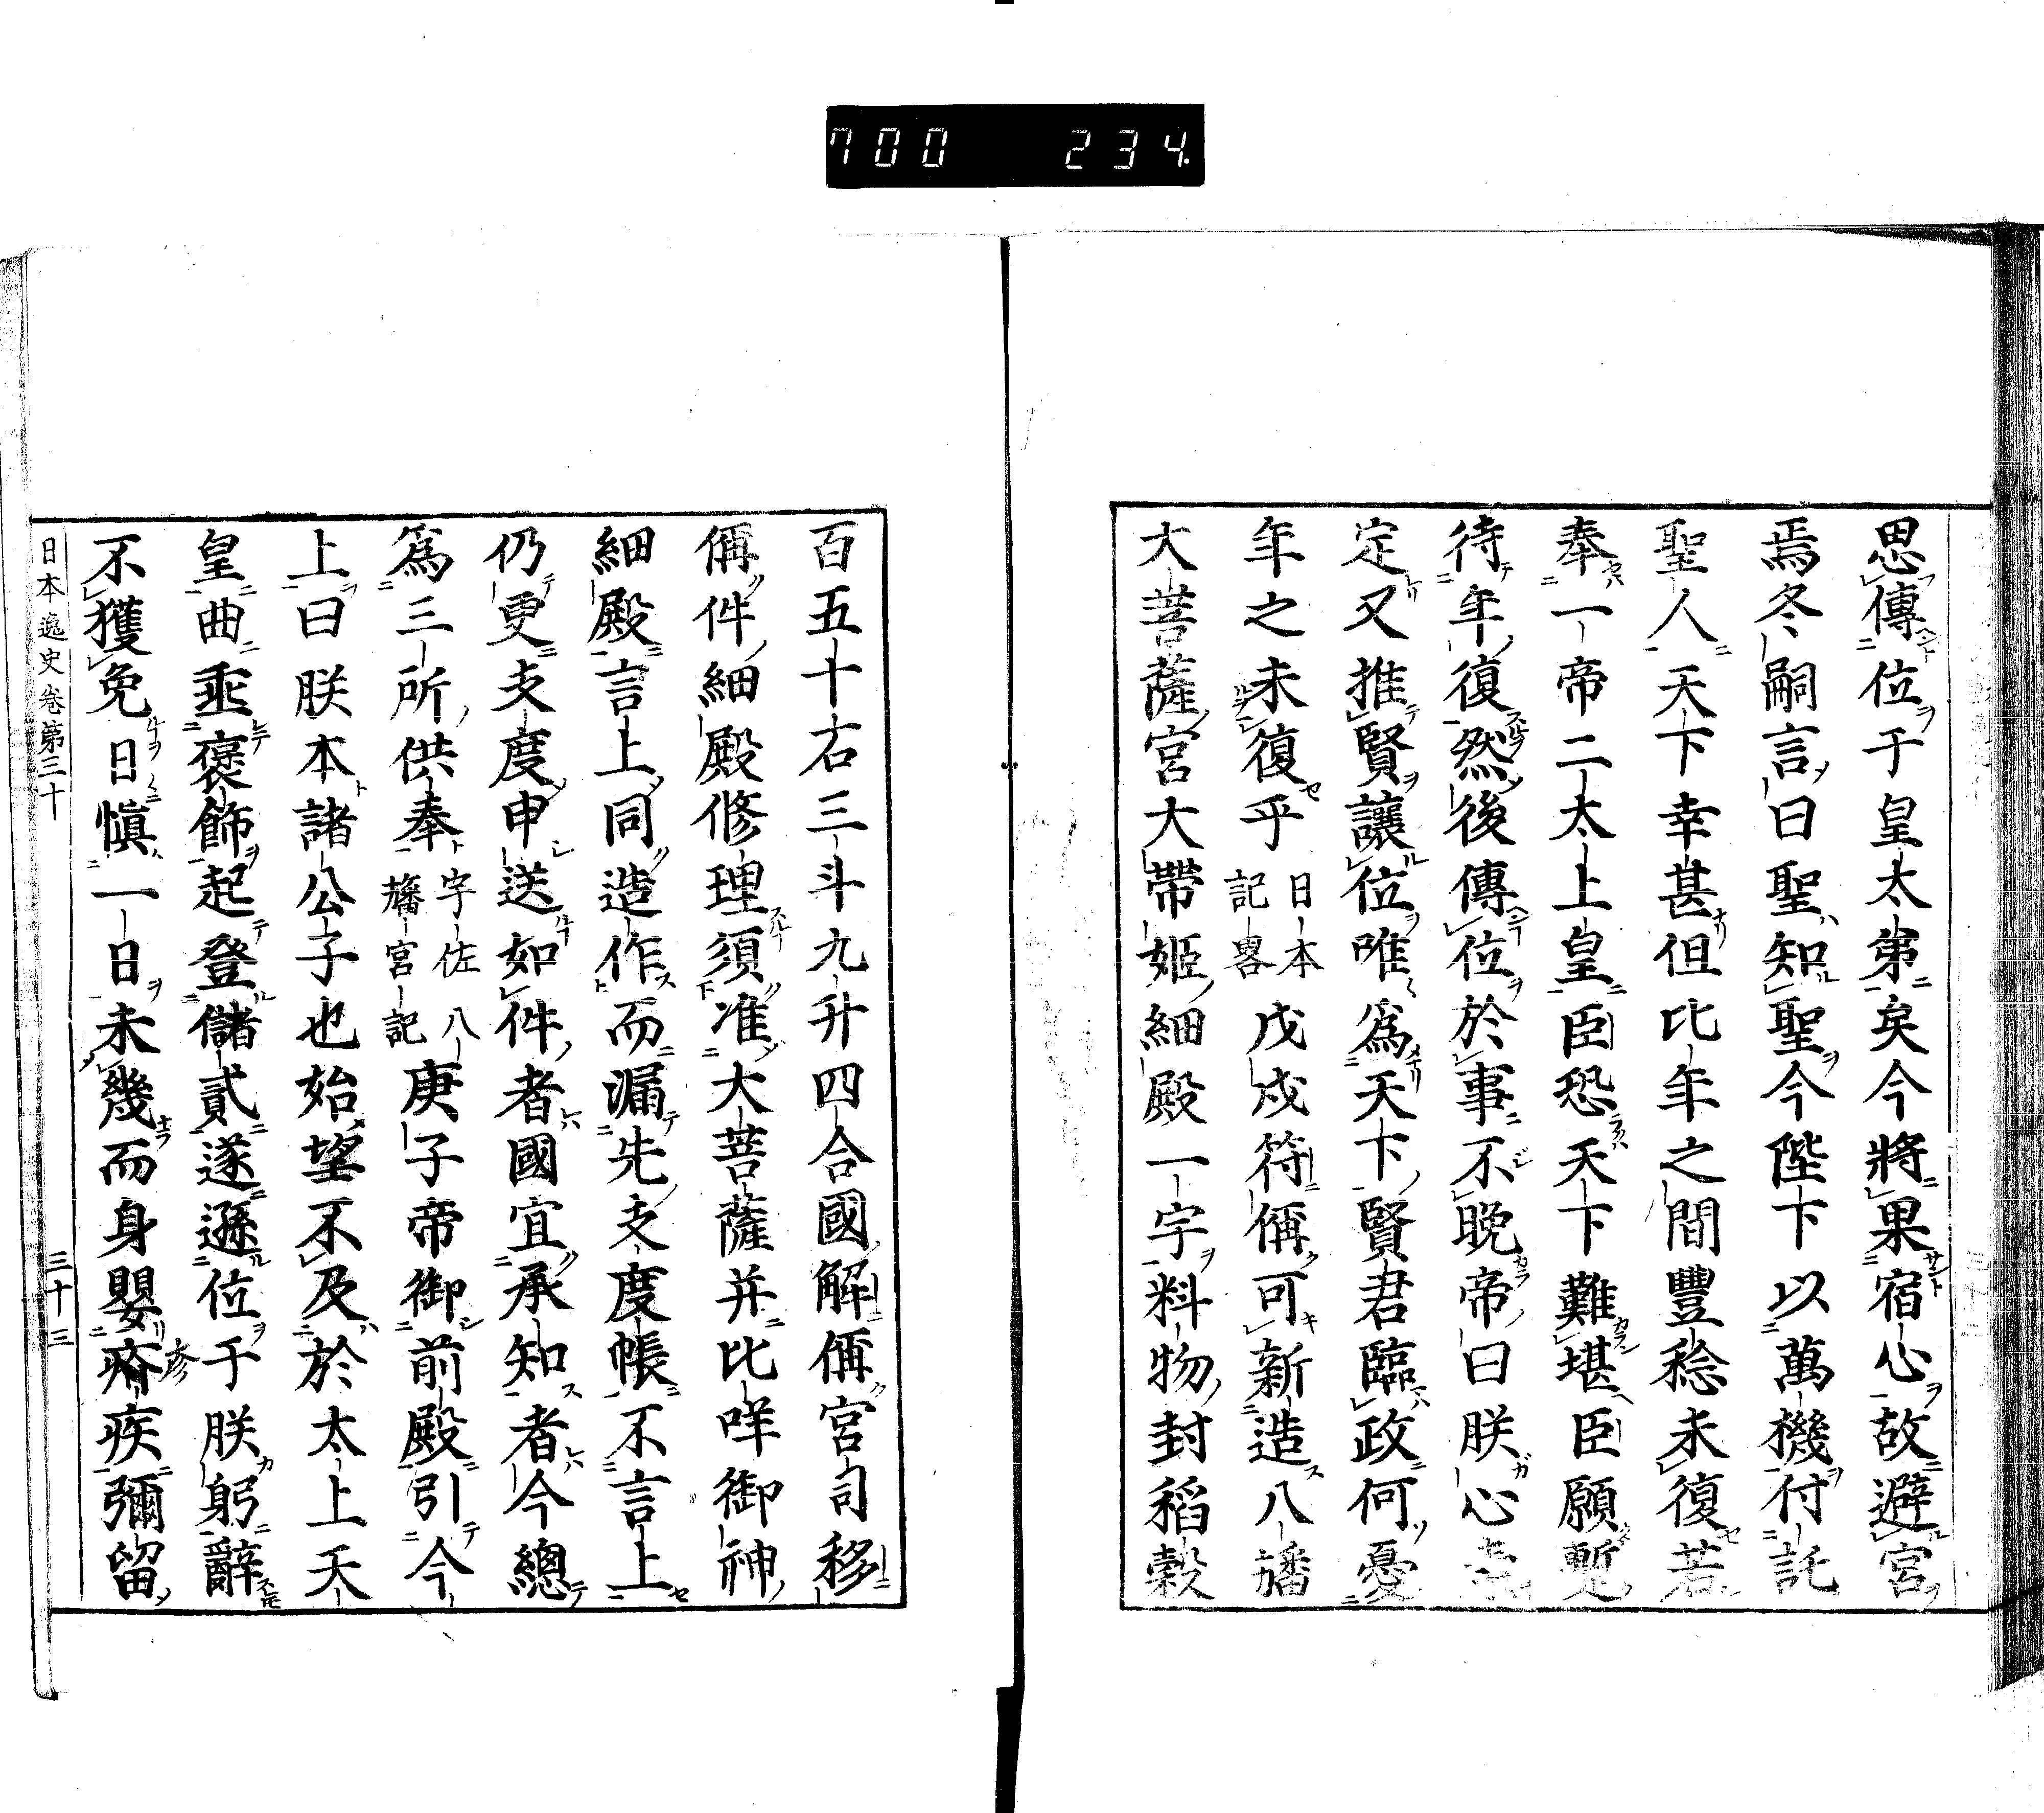 700 234
思傳位于皇太第矣今將果宿心故避宮
焉冬嗣言曰聖知聖今陛下以萬機付託
聖人天下幸甚但比年之間豐稔未復若
奉一帝二太上皇臣恐天下難堪臣願暫
待年復然後傳位於事不晩帝曰朕心
定又推賢讓位唯爲天下賢君臨政何憂
年之未復乎日本記畧戊戌符偁可新造八旛
大菩薩宮大帶姬細殿一宇料物封稻穀
百五十石三斗九升四合國解偁宮司移
偁件細殿修理須准大菩薩并比咩御神
細殿言上同造作而漏先支度帳不言上
仍更支度申送如件者國宜承知者今總
爲三所供奉宇佐八旛宮記庚子帝御前殿引今
上曰朕本諸公子也始望不及於太上天
皇曲垂褒飾起登儲貳遂遜位于朕躬辭
不獲免日愼一日未幾而身嬰疹疾彌留
日本逸史卷第三十 三十三